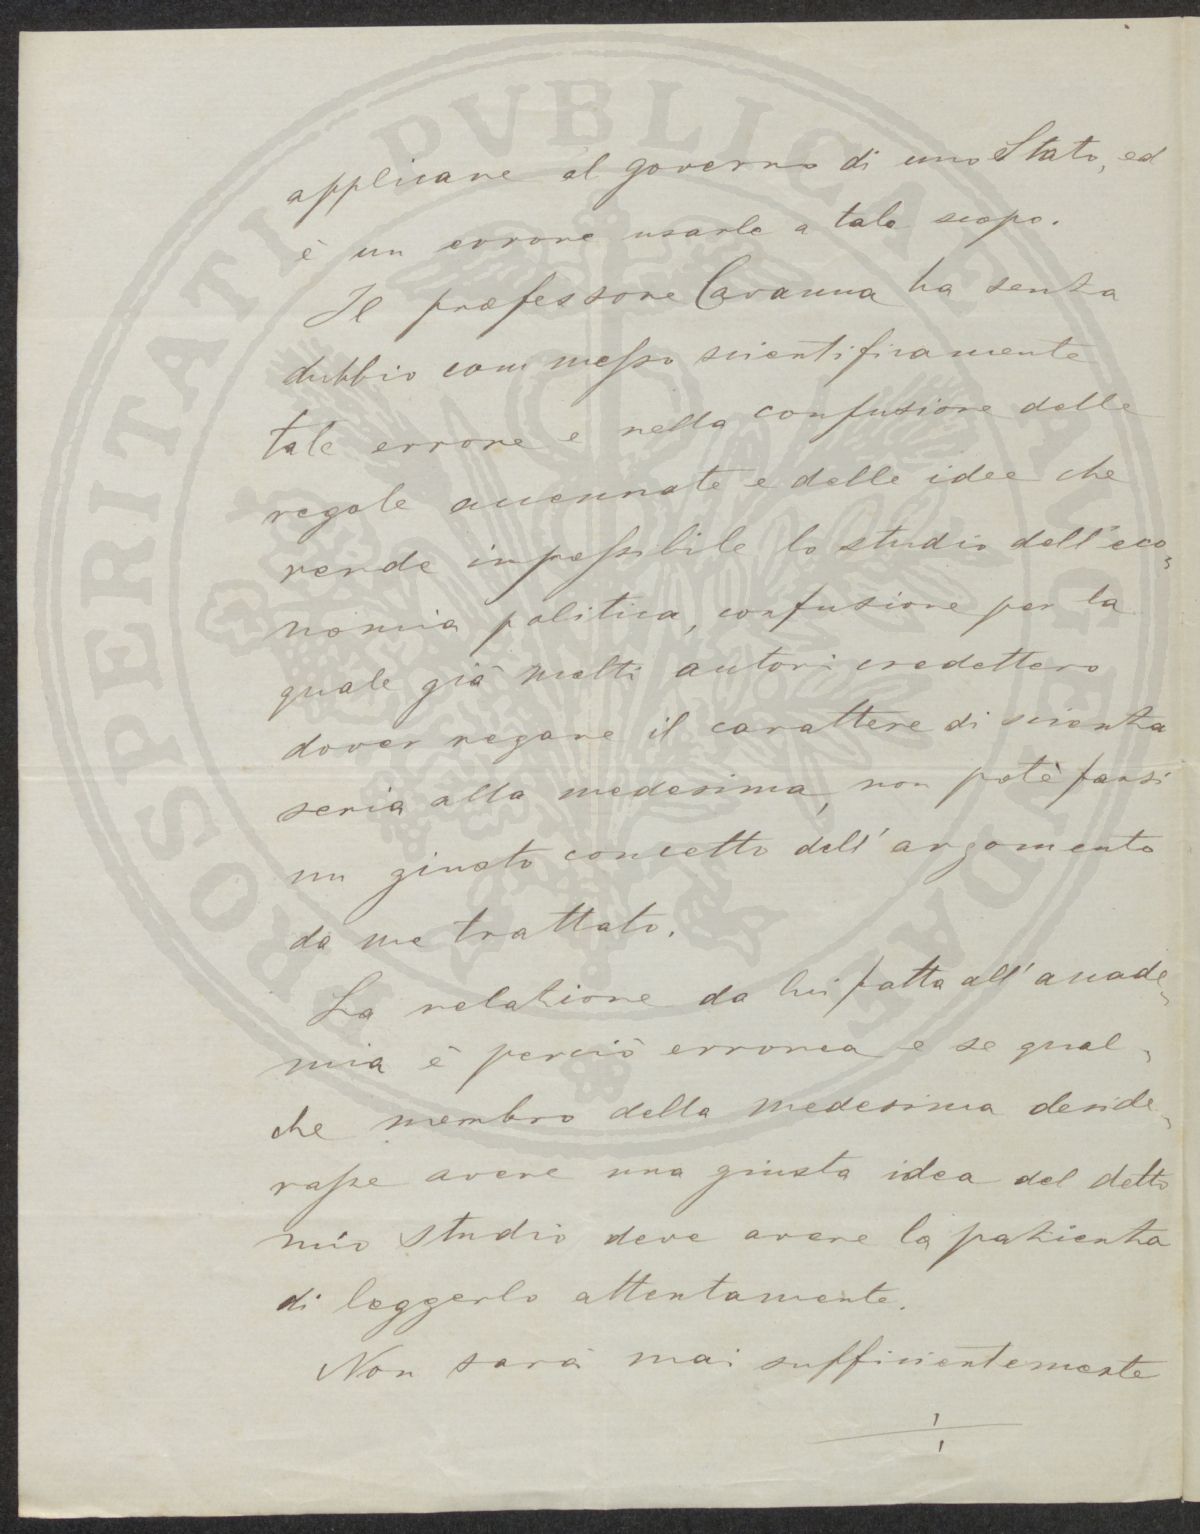 applicare al governo di uno Stato, ed
è un errore usarle a tale scopo.
Il professore Cavanna ha senza
dubbio commesso scientificamente
tale errore e nella confusione delle
regole accennate e delle idee che
rende impossibile lo studio dell'eco„
nomia politica, confusione per la
quale già molti autori credettero
dover negare il carattere di scienza
seria alla medesima, non potè farsi
un giusto concetto dell'argomento
da me trattato.
La relazione da lui fatta all'accade„
mia è perciò erronea e se qual„
che membro della medesima deside„
rasse avere una giusta idea del detto
mio studio deve avere la pazienza
di leggerlo attentamente.
Non sarà mai sufficientemente
PROSPERITATI PVBLICAE AVGENDAE